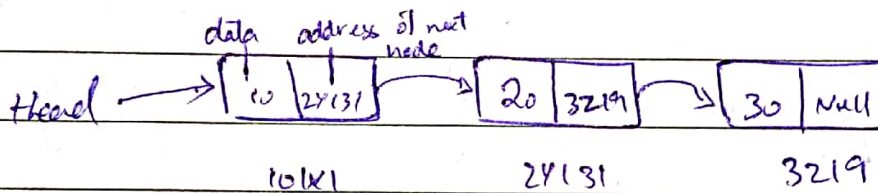 data address of next
node
Head 10 24131 20 3219 30 Null
24131 3219